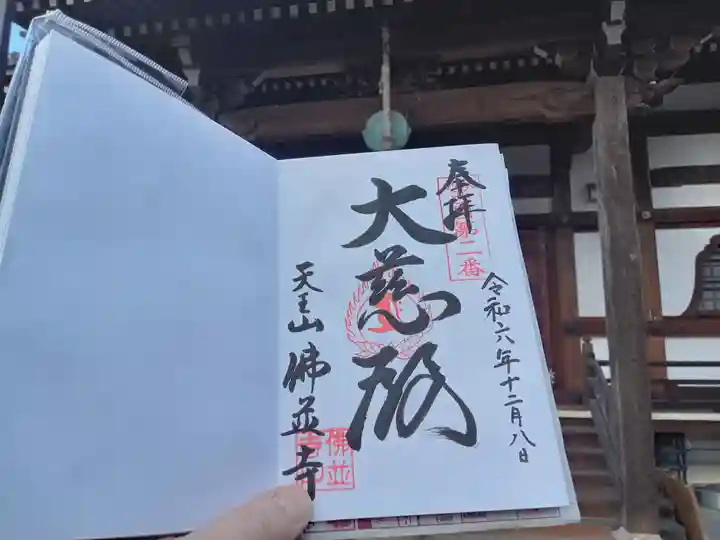 奉拝
第二番
令和六年十二月八日
大慈殿
天王山 佛並寺
佛並